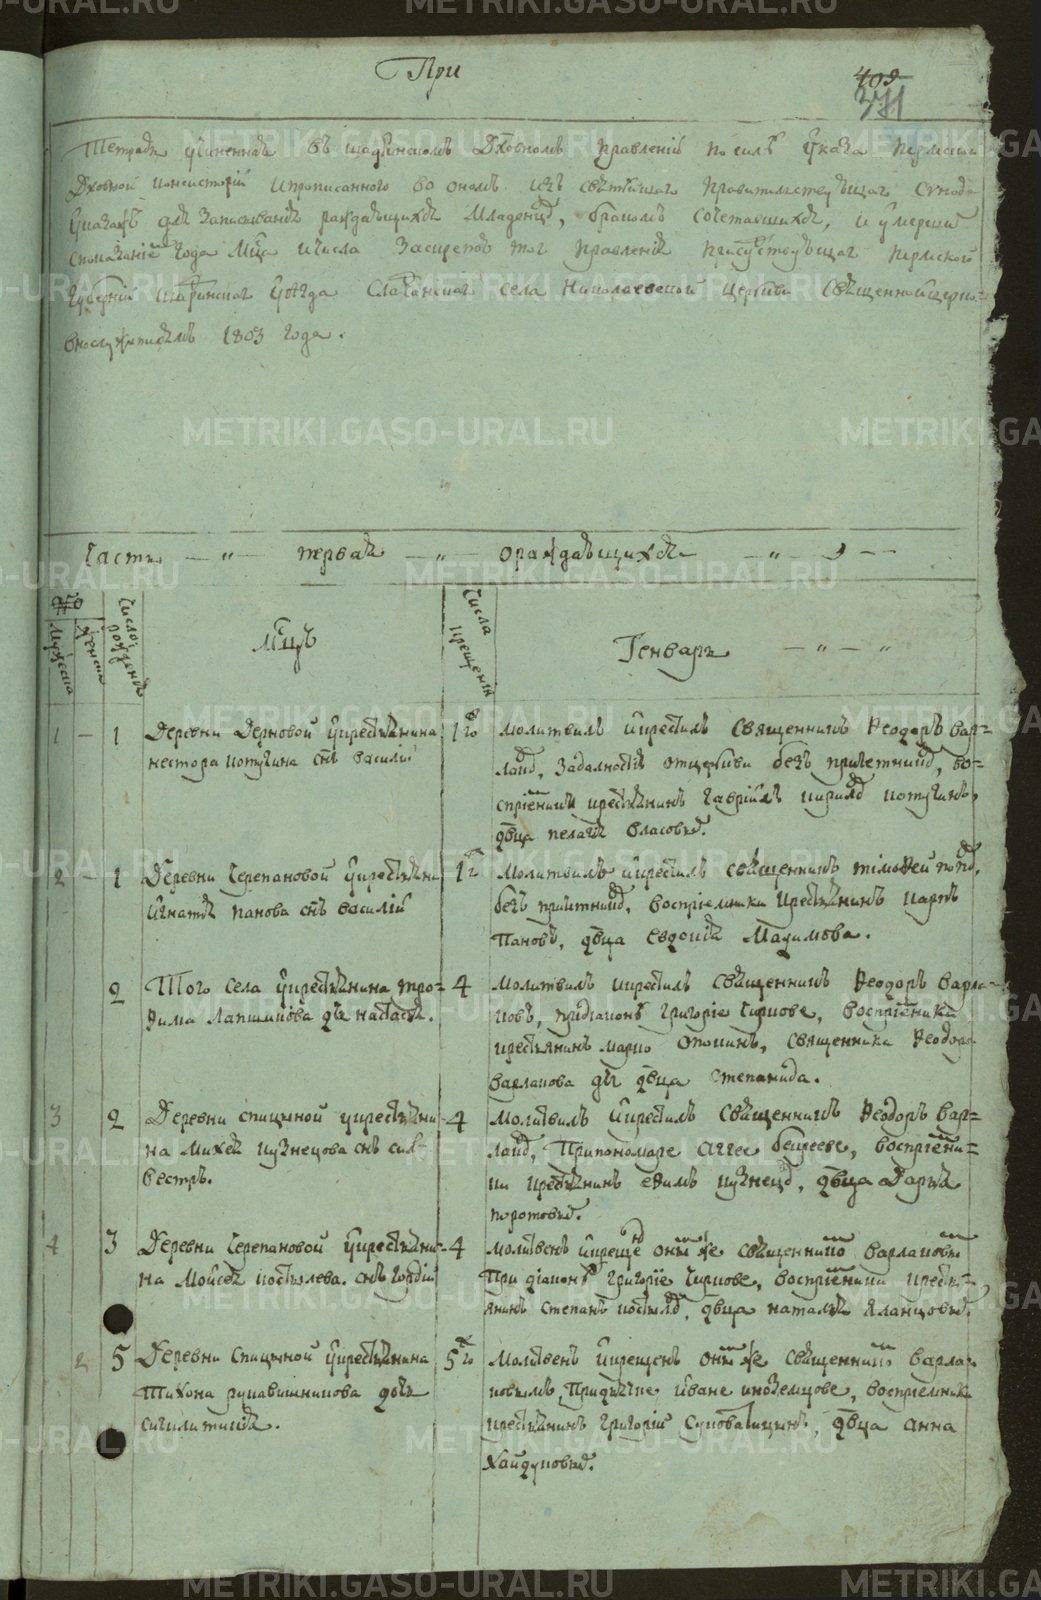 При
409
371
Тетрадь учиненная въ шадринскомъ Дховномъ правленiи по силѣ Указа пермской
Дховной консисторiи и прописаннаго во ономъ изъ свѣтѣйшаго правительствующаго Сунода
Указахъ для записыванiя раждающихся младенцовъ, бракомъ сочетавшихся, и умершихъ
года Мца и числа Заскрепою тог правленiя присутствующаг пермской
Губернiи шадринскаг уѣзда села Николаевской церкви священноицерко-
внослужителемъ 1803 года.
Часть — „ — первая — „ — ораждающихся — „ —
№
мужеска
женска
Число рожденiя
Мцъ
Числа крещенiя
Генварь — „ — „
1 — 1 Деревни Дерновой Укрестьянина
нестора котугина снъ василiй
1го молитвилъ икрестилъ священникъ Ѳеодоръ вар-
лаковъ, Задалностiю отцеркви безъ причетниковъ, во-
спрiемники крестьянинъ гаврiилъ кириловъ котугинъ,
двца пелагiя власовыхъ.
2 — 1 Деревни Черепановой Укрестьянина
игнатья панова снъ василiй
1го молитвилъ икрестилъ священникъ тимоѳей поповъ,
безъ причетниковъ, воспрiемники крестьянинъ карпъ
Пановъ, двца Евдокiя Максимова.
2 Того села Укрестьянина тро-
ѳима Лапшинова дчь настасья.
4 молитвилъ икрестилъ священникъ Ѳеодоръ варла-
ковъ, придiаконѣ григорiе Чиркове, воспрiемники
крестьянинъ марко священника Ѳеодора
варлакова дчь двца степанида.
3 2 Деревни спицыной укрестьяни-
на михея кузнецова снъ сил-
вестръ.
4 молитвилъ икрестилъ священникъ Ѳеодоръ вар-
лаковъ, Припономаре аггее воспрiемни-
ки крестьянинъ еѳимъ кузнецовъ, двца дарья
коротовыхъ.
4 3 Деревни Черепановой Укрестьяни-
на Мойсея костылева снъ гордiй
4 молитвенъ икрещенъ онымже священникомъ варлаковымъ
При дiаконѣ григорiе Чиркове, воспрiемники кресть-
янинъ степанъ костылевъ, двца наталья яланцовыхъ.
2 5 Деревни спицыной Укрестьянина
Тихона рукавишникова дочь
сигклитикiя.
5го молитвенъ икрещенъ онымже священникомъ варла-
ковымъ, Придьячке иване иноземцове, воспрiемники
крестьянинъ григорiй двца анна
хайдуковыхъ.
METRIKI.GASO-URAL.RU